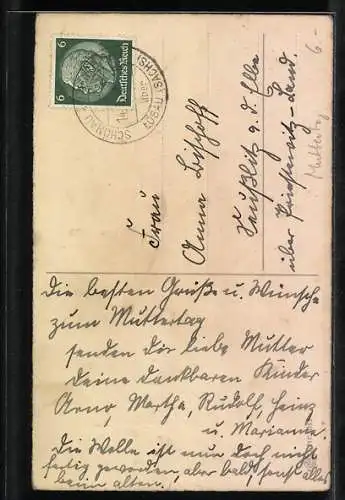 6
Deutsches Reich
6
SCHÖNAU
6-
Muttertag
Frau
Anna Bischoff
Seußlitz a. d. Elbe
über Priestewitz-Land.
Die besten Grüße u. Wünsche
zum Muttertag
senden dir liebe Mutter
deine dankbaren Kinder
Arno, Martha, Rudolf, Heinz
u. Marianne.
Die Wolle ist nun doch nicht
fertig geworden, aber bald, sonst alles
beim alten.